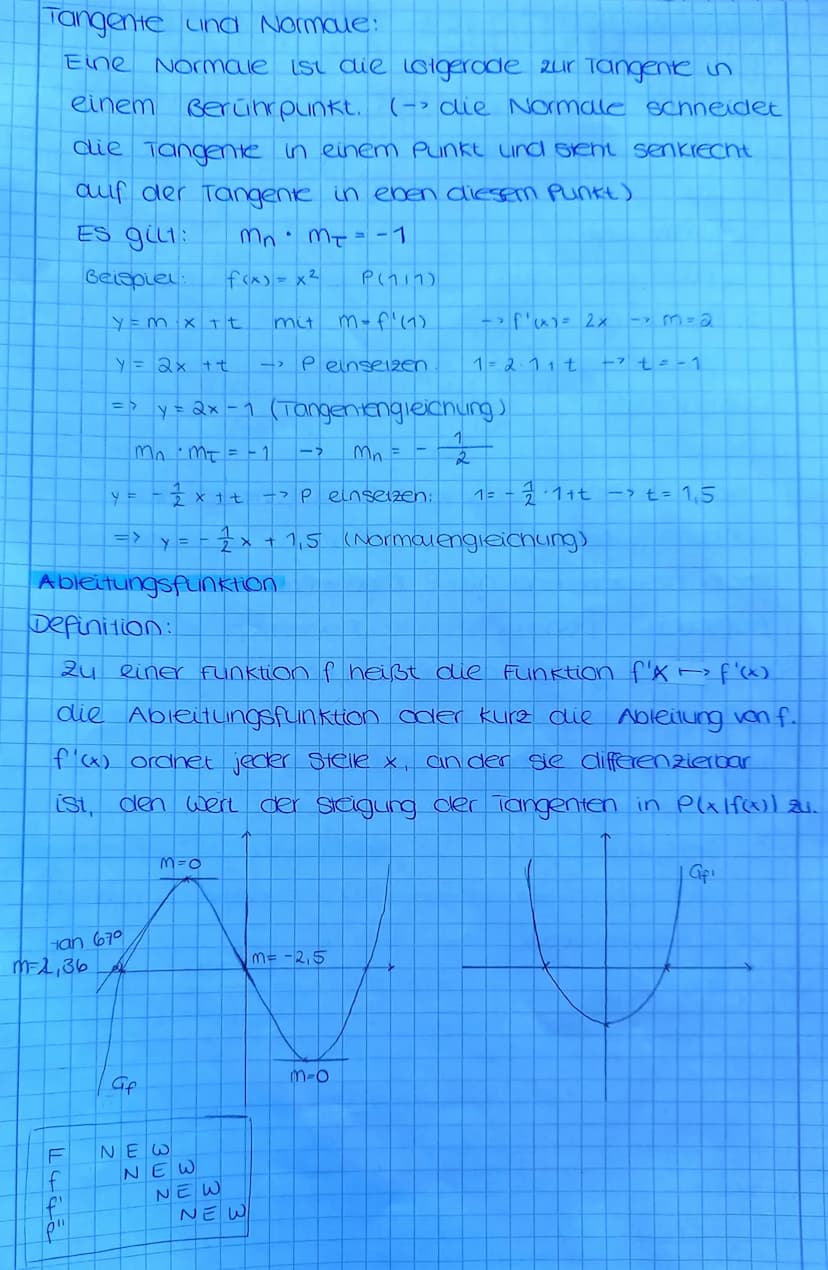 Tangente und Normale:
Eine Normale ist die Lotgerade zur Tangente in
einem Berührpunkt. (-> die Normale schneidet
die Tangente in einem Punkt und steht senkrecht
auf der Tangente in eben diesem Punkt)
Es gilt: mn · mT = -1
Beispiel: f(x) = x² P(1|1)
y = m · x + t mit m = f'(1) -> f'(x) = 2x -> m = 2
y = 2x + t -> P einsetzen 1 = 2 · 1 + t -> t = -1
=> y = 2x - 1 (Tangentengleichung)
mn · mT = -1 -> mn = - 1/2
y = - 1/2 x + t -> P einsetzen: 1 = - 1/2 · 1 + t -> t = 1,5
=> y = - 1/2 x + 1,5 (Normalengleichung)
Ableitungsfunktion
Definition:
Zu einer Funktion f heißt die Funktion f'x ↦ f'(x)
die Ableitungsfunktion oder kurz die Ableitung von f.
f'(x) ordnet jeder Stelle x, an der sie differenzierbar
ist, den Wert der Steigung der Tangenten in P(x|f(x)) zu.
m=0
tan 67°
m=2,36
m= -2,5
m=0
Gf
Gf'
F N E W
f N E W
f' N E W
f'' N E W